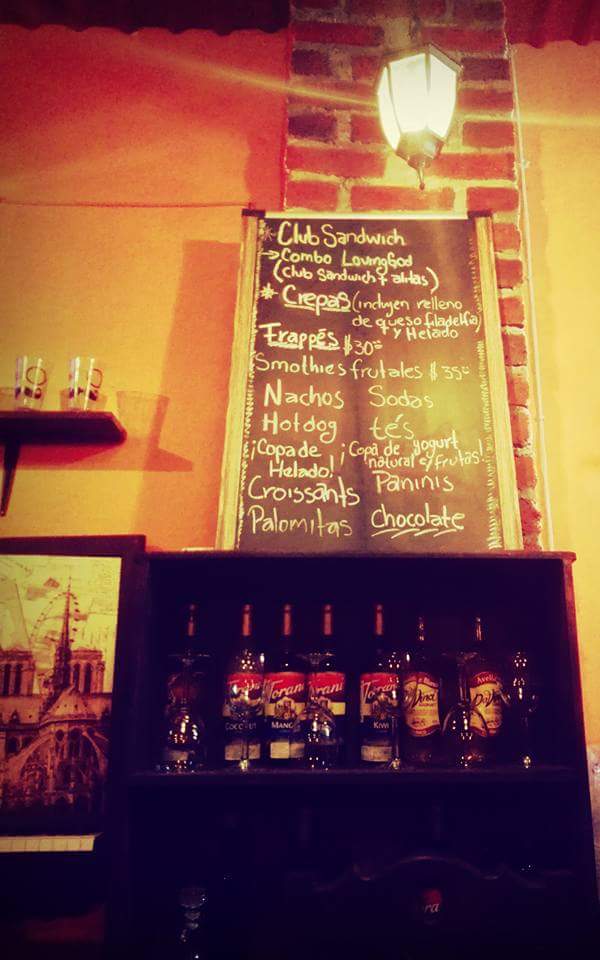 * Club Sandwich
→ Combo LovingGod
(Club Sandwich + alitas)
* Crepas (incluyen relleno
de queso filadelfia
y Helado)
Frappés $30
Smothies frutales $35
Nachos Sodas
Hotdog tés
¡Copa de Helado!
¡Copa de yogurt natural c/frutas!
Croissants Paninis
Palomitas Chocolate
Torani
Coconut
Torani
Mango
Torani
Torani
Kiwi
DaVinci
DaVinci